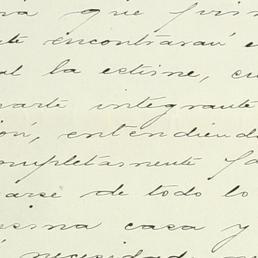 ra que prin
te encontraran e
al la estime, cu
parte integrante
ión, entendiend
completamente fa
arse de todo lo
esma casa y
necesidad